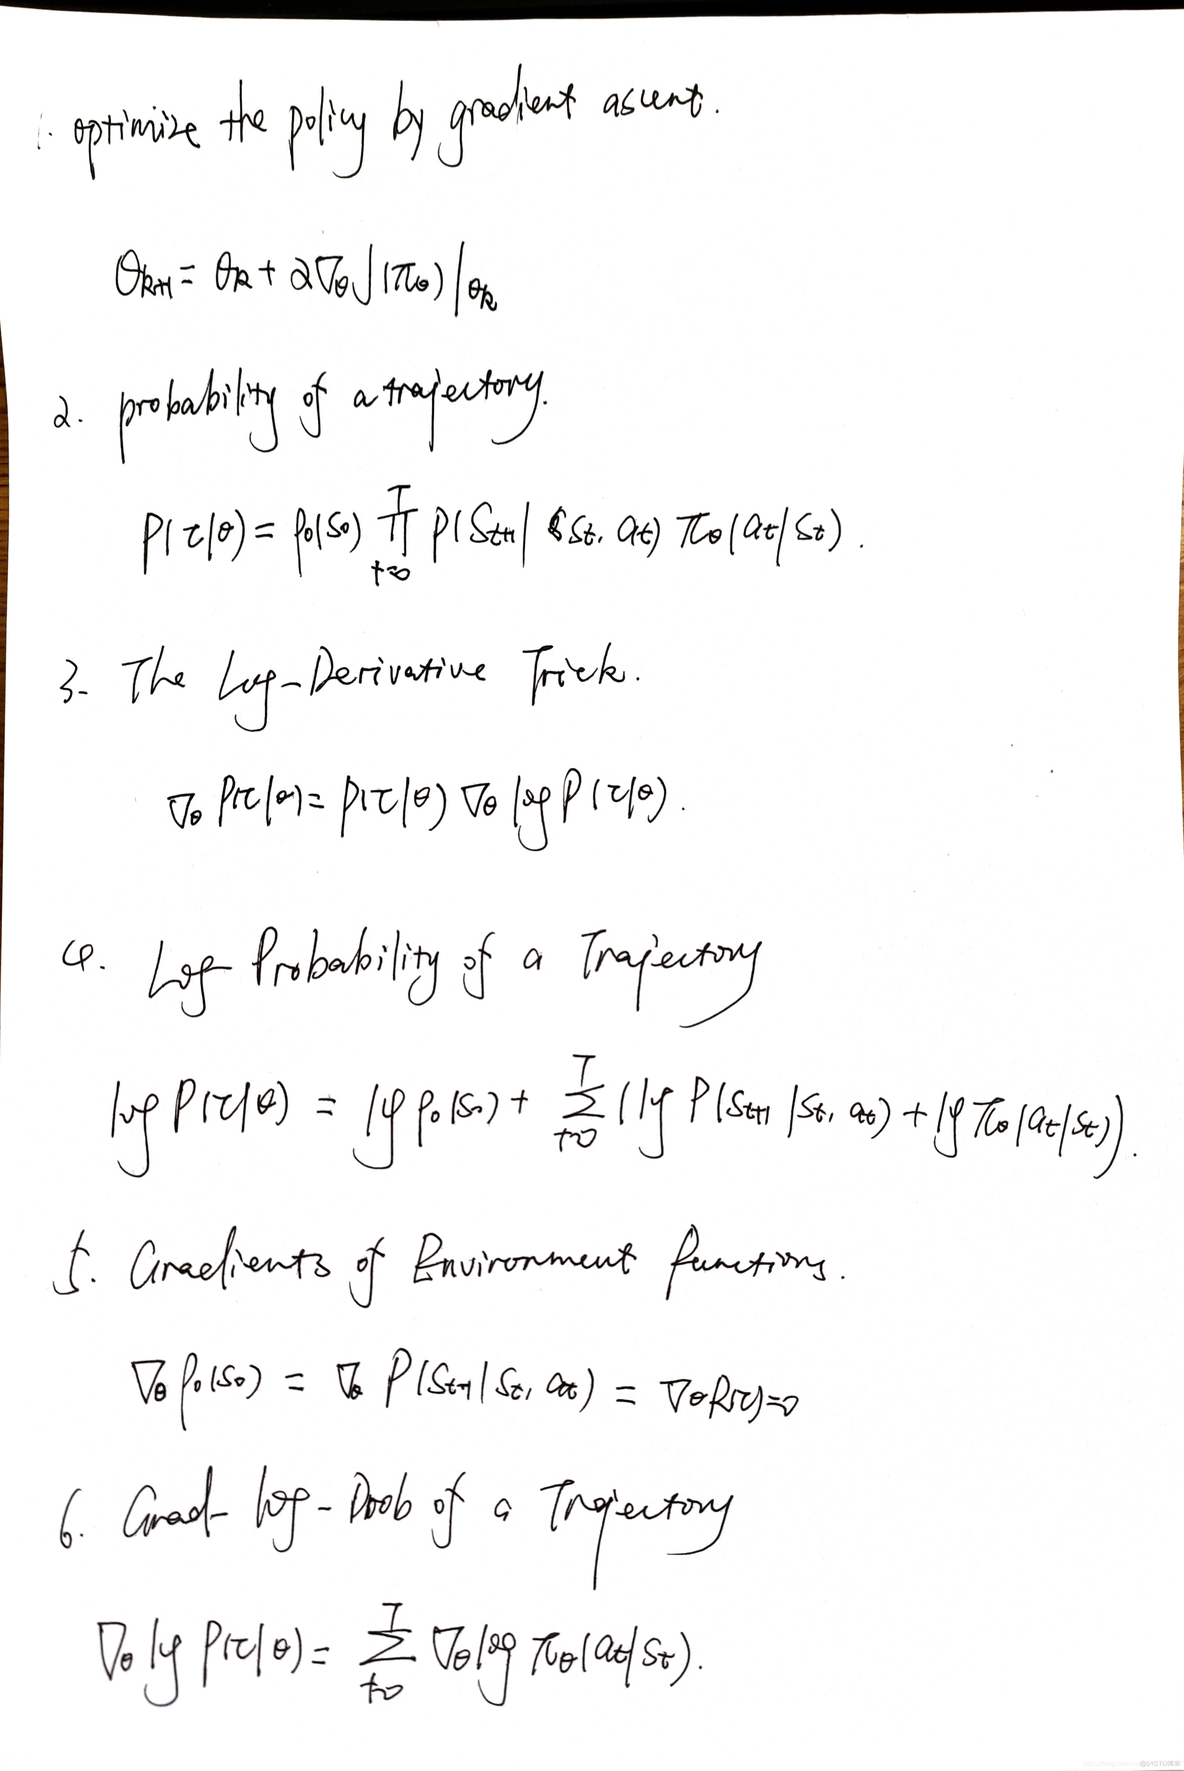 1. optimize the policy by gradient ascent.
θ_{k+1} = θ_k + α∇_θ J(π_θ)|_{θ_k}
2. probability of a trajectory.
P(τ|θ) = ρ_0(s_0) ∏_{t=0}^{T} P(S_{t+1}| S_t, a_t) π_θ(a_t|S_t).
3. The Log-Derivative Trick.
∇_θ P(τ|θ) = P(τ|θ) ∇_θ log P(τ|θ).
4. Log Probability of a Trajectory
log P(τ|θ) = log ρ_0(s_0) + ∑_{t=0}^{T} (log P(S_{t+1}|S_t, a_t) + log π_θ(a_t|S_t)).
5. Gradients of Environment functions.
∇_θ ρ_0(s_0) = ∇_θ P(S_{t+1}|S_t, a_t) = ∇_θ R(τ) = 0
6. Grad-log-Prob of a Trajectory
∇_θ log P(τ|θ) = ∑_{t=0}^{T} ∇_θ log π_θ(a_t|S_t).